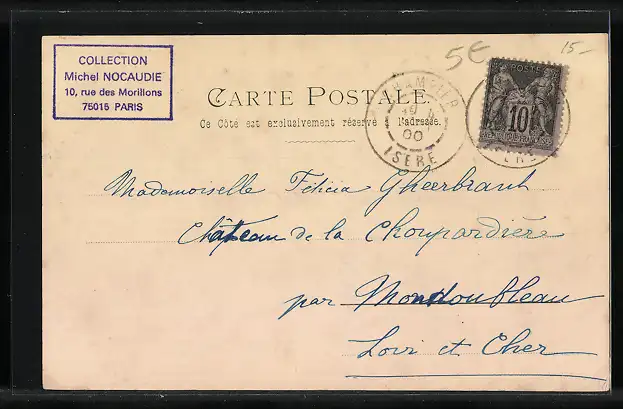 COLLECTION
Michel NOCAUDIE
10, rue des Morillons
75015 PARIS
5€
15-
CARTE POSTALE.
Ce Côté est exclusivement réservé à l'adresse.
00
ISERE
POSTE
10
Mademoiselle Félicia Gheerbrant
Château de la Choupardière
par Mondoubleau
Loir et Cher